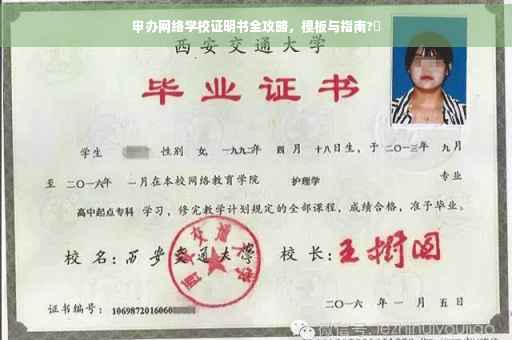 申办网络学校证明书全攻略，模板与指南?
西安交通大学
毕业证书
学生 性别 女，一九九二年 四 月 十八日生，于 二〇一三年 九月
至 二〇一六年 一月在本校网络教育学院 护理学 专业
高中起点专科 学习，修完教学计划规定的全部课程，成绩合格，准予毕业。
校 名：西安交通大学 校 长：王树国
证书编号：1069872016060
二〇一六 年 一 月 五 日
微信号: jezhihuiyoujiao